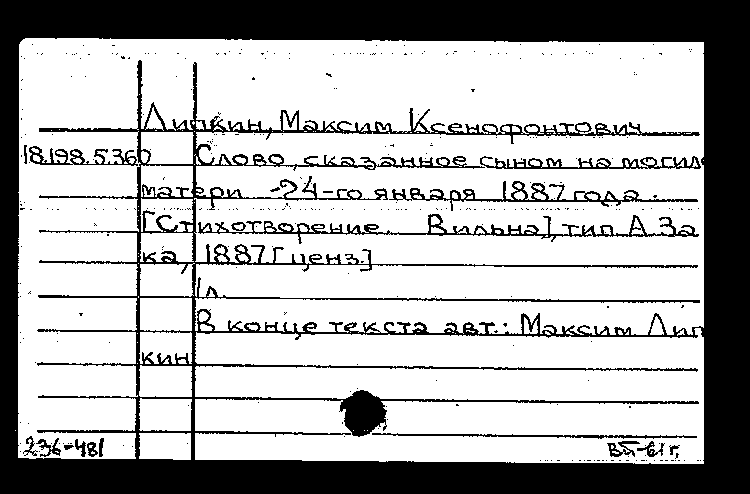 Липкин, Максим Ксенофонтович
18.198.5.360 Слово, сказанное сыном на могиле
матери 24-го января 1887 года.
[Стихотворение. Вильна], тип А. За
ка, 1887 [ценз.]
1л.
В конце текста авт.: Максим Лип
кин
236-481 ВП-61 г.